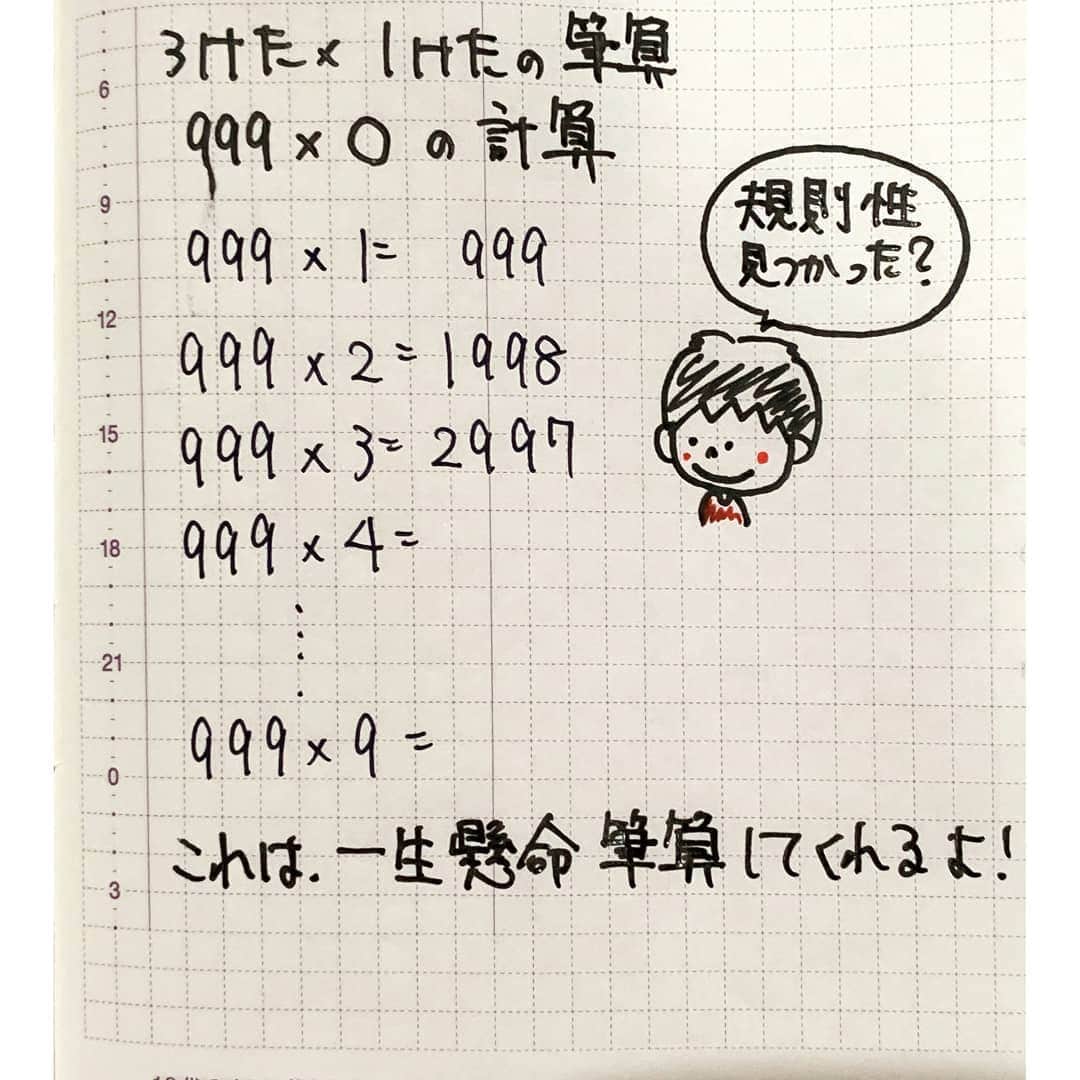 3けた×1けたの筆算
999×0の計算
999×1= 999
999×2=1998
999×3=2997
999×4=
999×9=
これは.一生懸命筆算してくれるよ!
規則性
見つかった?
6
9
12
15
18
21
0
3